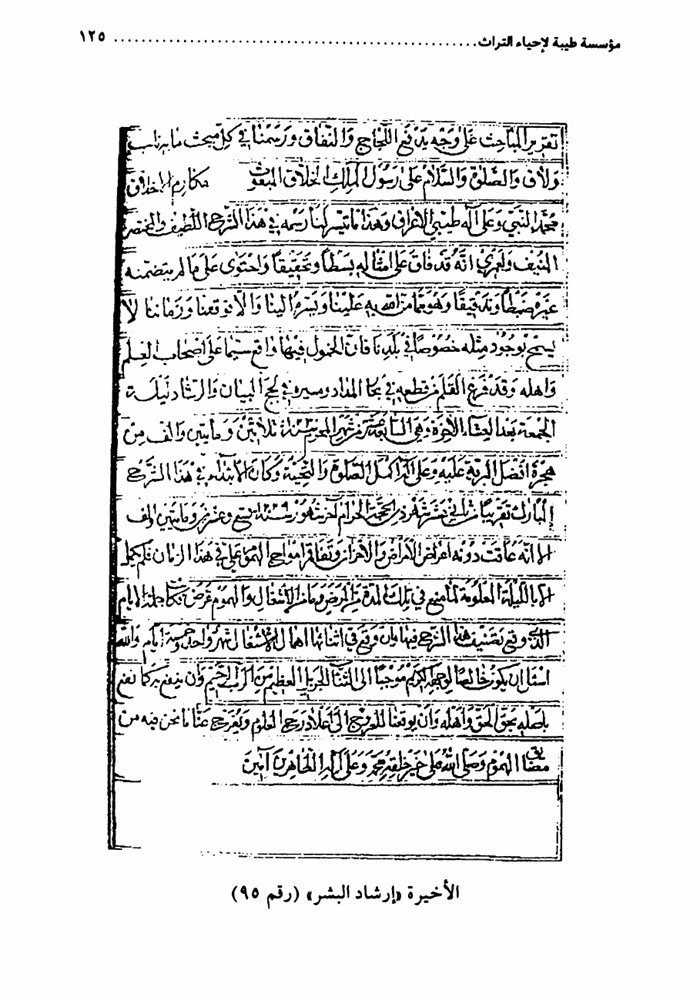 مؤسسة طيبة لإحياء التراث ........................................................ ١٢٥
تقرير المباحث على وجه يدفع اللجاج والنفاق ورسمنا في كل مبحث ما يناسب
ولاق والصلوة والسلام على رسول الملك الخلاق المبعوث مكارم الاخلاق
محمد النبي وعلى آله طيبي الاعراق وهذا ما تيسر لنا رسمه في هذا الشرح اللطيف والمختصر
المنيف ولعمري انه قد فاق على امثاله بسطا وتحقيقا واحتوى على ما لم يتضمنه
غيره ضبطا وتدقيقا وهو مما من الله به علينا ويسره الينا والا فوقعنا وزماننا لا
يسمح بوجود مثله خصوصا في بلدنا فان الخمول فيها واقع سيما على اصحاب العلم
واهله وقد فرغ القلم من قطعه في بحار المداد وسيره في لجج البيان والرشاد ليلة
الجمعة بعد العشاء الآخرة وهي السابعة من شهر المحرم سنة ثلاثين ومأيتين والف من
هجرة افضل البرية عليه وعلى آله اكمل الصلوة والتحية وكان الابتداء في هذا الشرح
المبارك تقريبا شهر ذي الحجة الحرام آخر شهور سنة تسع وعشرين ومأيتين والف
الا انه عاقت دونه اعراض الامراض والاعراض وتفاقم امواج الهموم علي في هذا الزمان فلم يكمل
الا بالليلة المعلومة لما منع في تلك المدة من المرض وعارض الاشغال والهموم عرض فكانت جملة الايام
الذي وقع تصنيف هذا الشرح فيها وان وقع في اثنائها اهمال للاشغال شهر واحد وخمسة ايام والله
اسئل ان يكون خالصا لوجهه الكريم موجبا الى الثناء الجزيل العظيم من الرب الرحيم وان ينفع به كما نفع
باصله بحق الحق واهله وان يوفقنا للعروج الى اعلا درج العلوم ويفرج عنا ما نحن فيه من
مضائق الهموم وصلى الله على خير خلقه محمد وعلى آله الطاهرين آمين
الأخيرة «إرشاد البشر» (رقم ٩٥)